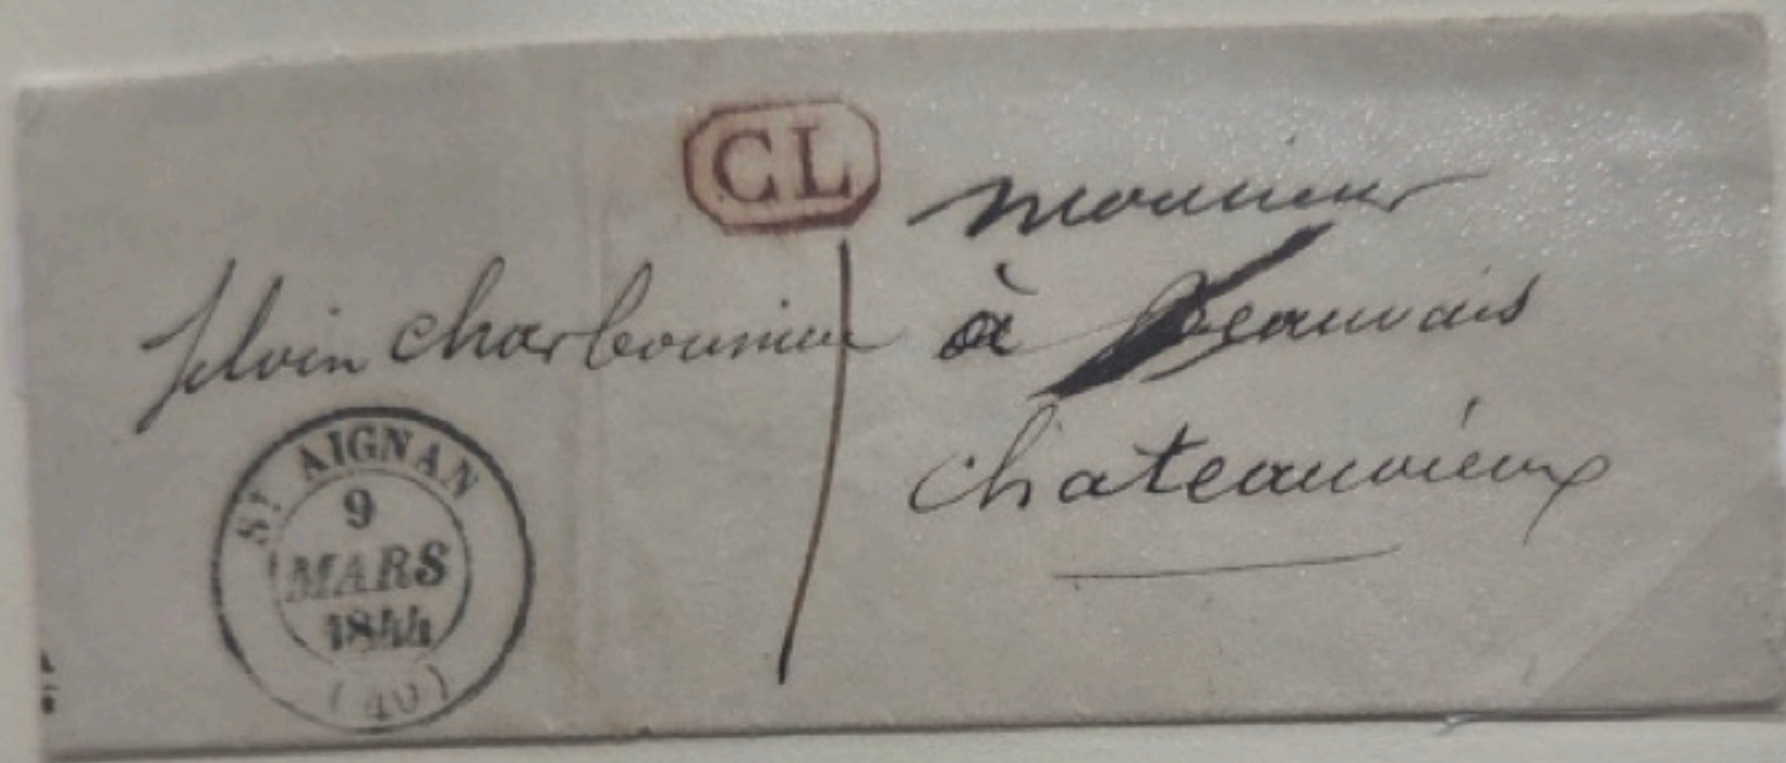 CL
Monsieur
silvin charbonnier à Beauvais
chateauvieux
ST AIGNAN
9
MARS
1844
(40)